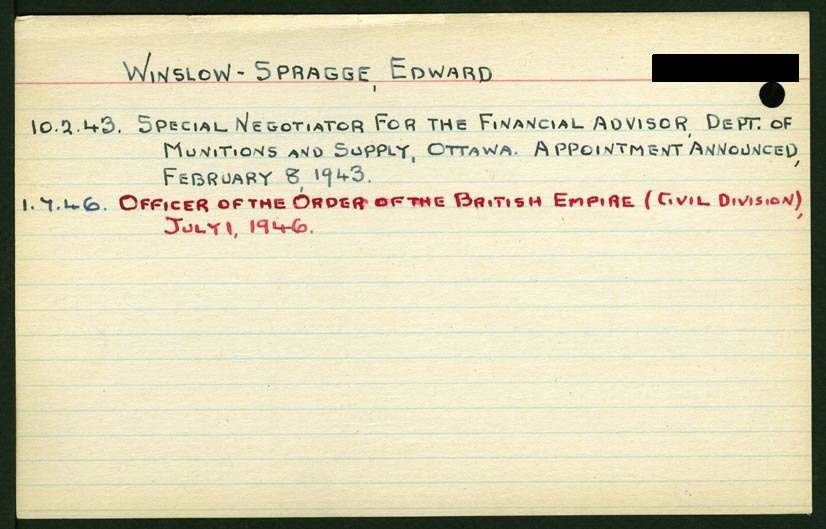 WINSLOW-SPRAGGE, EDWARD
10.2.43. SPECIAL NEGOTIATOR FOR THE FINANCIAL ADVISOR, DEPT. OF
MUNITIONS AND SUPPLY, OTTAWA. APPOINTMENT ANNOUNCED,
FEBRUARY 8, 1943.
1.7.46. OFFICER OF THE ORDER OF THE BRITISH EMPIRE (CIVIL DIVISION),
JULY 1, 1946.